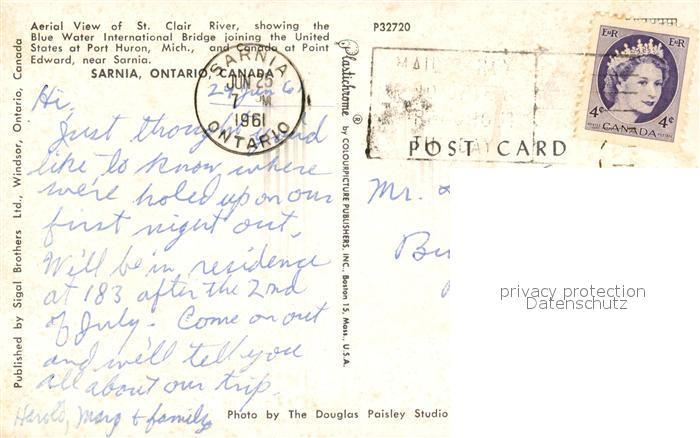 Aerial View of St. Clair River, showing the
Blue Water International Bridge joining the United
States at Port Huron, Mich., and Canada at Point
Edward, near Sarnia.
SARNIA, ONTARIO, CANADA
P32720
SARNIA
JUN 25
7 PM
1961
ONTARIO
MAIL
E II R
E II R
4¢
4¢
CANADA
POST CARD
Hi,
Just thought you'd
like to know where
we're holed up on our
first night out.
We'll be in residence
at 183 after the 2nd
of July. Come on out
and we'll tell you
all about our trip.
Harold, Marg & family
Mr. &
Photo by The Douglas Paisley Studio
Published by Sigal Brothers Ltd., Windsor, Ontario, Canada
Plastichrome ® by COLOURPICTURE PUBLISHERS, INC., Boston 15, Mass., U.S.A.
privacy protection
Datenschutz